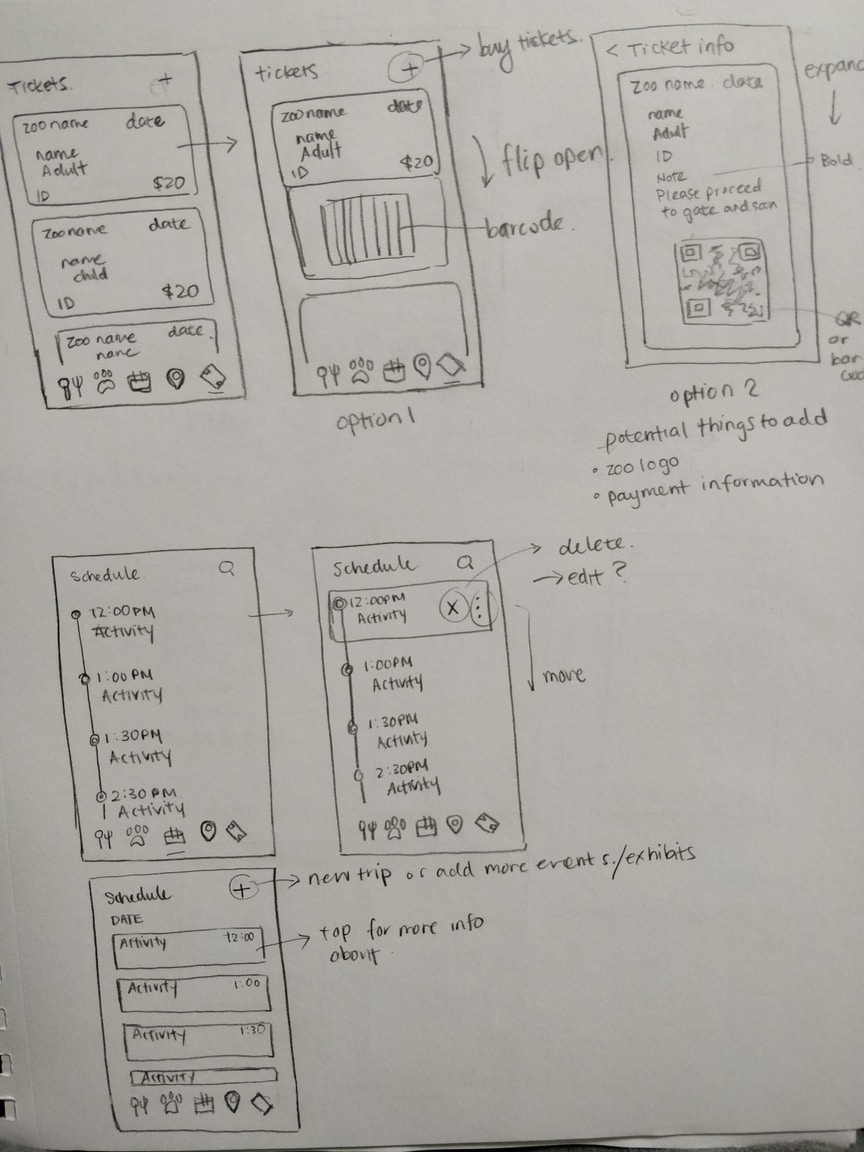 Tickets. +
zoo name date
name
Adult
ID $20
zoo name date
name
child
ID $20
zoo name date.
name
tickets + buy tickets.
zoo name date
name
Adult
ID $20
flip open.
barcode.
option 1
< Ticket info
zoo name date
name
Adult
ID
Note
Please proceed
to gate and scan
Bold
QR
or
bar
option 2
potential things to add
• zoo logo
• payment information
Schedule.
12:00PM
Activity
1:00 PM
Activity
1:30PM
Activity
2:30 PM
Activity
Schedule
12:00PM
Activity x
1:00PM
Activity
1:30PM
Activity
2:30PM
Activity
delete.
edit?
move
Schedule + new trip or add more events./exhibits
DATE
Activity 12:00
Activity 1:00
Activity 1:30
Activity
tap for more info
about.